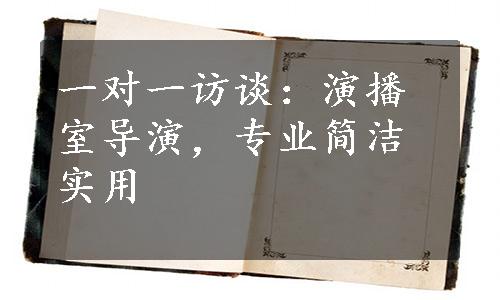 一对一访谈：演播
室导演，专业简洁
实用